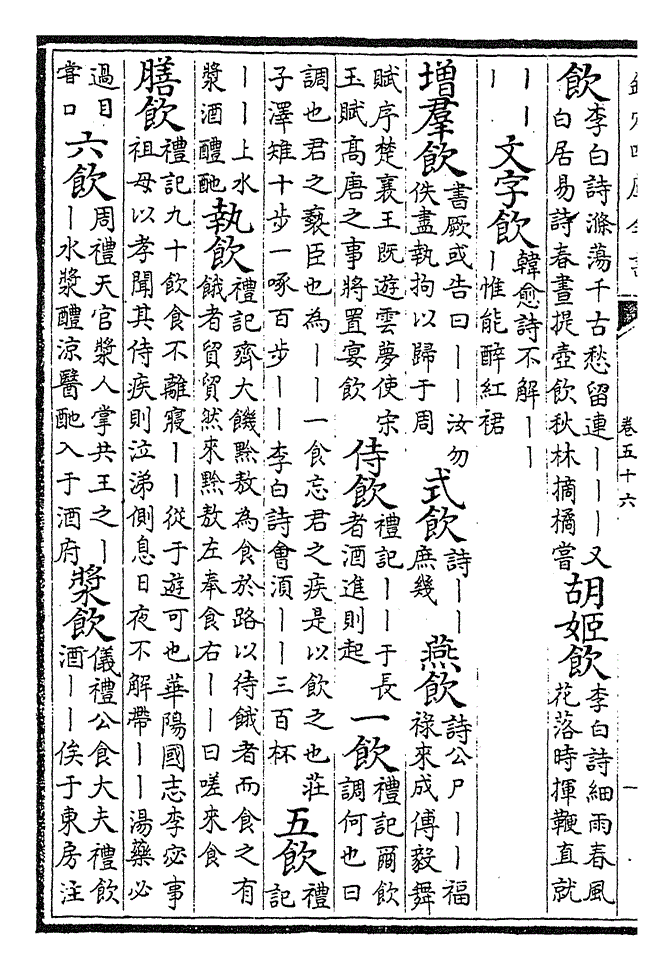 卷五十六
飲李白詩滌蕩千古愁留連丨丨丨又
白居易詩春晝提壺飲秋林摘橘嘗
胡姬飲李白詩細雨春風
花落時揮鞭直就
丨丨
丨
文字飲韓愈詩不解丨丨
丨惟能醉紅裙
増羣飲書厥或告曰丨丨汝勿
佚盡執拘以歸于周
式飲詩丨丨
庶幾
燕飲詩公尸丨丨福
祿來成傅毅舞
賦序楚襄王既遊雲夢使宋
玉賦髙唐之事將置宴飲
侍飲禮記丨丨于長
者酒進則起
一飲禮記爾飲
調何也曰
調也君之褻臣也為丨丨一食忘君之疾是以飲之也莊
子澤雉十步一啄百步丨丨李白詩會湏丨丨三百杯
五飲禮
記
丨丨上水
漿酒醴酏
執飲禮記齊大饑黔敖為食於路以待餓者而食之有
餓者貿貿然來黔敖左奉食右丨丨曰嗟來食
膳飲禮記九十飲食不離寢丨丨從于遊可也華陽國志李宓事
祖母以孝聞其侍疾則泣涕側息日夜不解帶丨丨湯藥必
過目
嘗口
六飲周禮天官漿人掌共王之丨
丨水漿醴涼醫酏入于酒府
漿飲儀禮公食大夫禮飲
酒丨丨俟于東房注